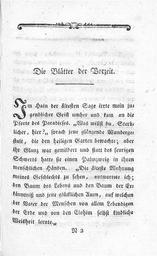 Die Blätter der Vorzeit.
Im Hain der ältesten Sage irrte mein ju-
gendlicher Geist umher und kam an die
Pforte des Paradieses. „Was willst du, Sterb-
licher, hier?„ sprach jene glänzende Wunderge-
stalt, die den heiligen Garten bewachet; aber
ihr Glanz war gemildert und statt des feurigen
Schwerts hatte sie einen Palmzweig in ihren
menschlichen Händen. „Die älteste Wohnung
meines Geschlechts zu sehen, antwortete ich;
den Baum des Lebens und den Baum der Er-
känntniß und jene glückseligen Auen, auf de-
nen der Vater der Menschen von allem Lebendi-
gen der Erde und von den Elohim selbst kindliche
Weisheit lernte.„
N 3